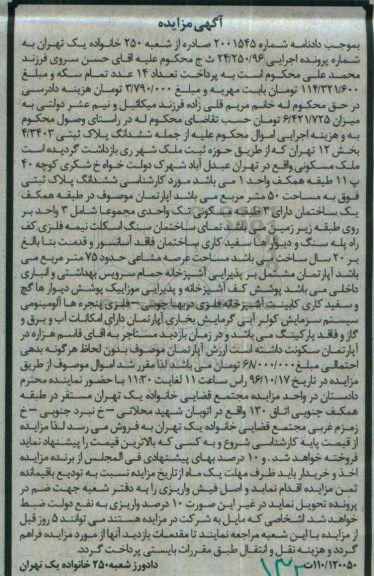 آگهی مزایده
بموجب دادنامه شماره ۲۰۰۱۵۴۵ صادره از شعبه ۲۵۰ خانواده یک تهران به
شماره پرونده اجرایی ۲۴/۲۵۰/۹۶ ش ج محکوم علیه آقای حسن سروی فرزند
محمد علی محکوم است به پرداخت تعداد ۱۴ عدد تمام سکه و مبلغ
۱۱۴/۳۲۱/۶۰۰ تومان بابت مهریه و مبلغ ۳/۷۹۰/۰۰۰ تومان هزینه دادرسی
در حق محکوم له خانم مریم قلی زاده فرزند میکائیل و نیم عشر دولتی به
میزان ۶/۴۲۱/۷۲۵ تومان حسب تقاضای محکوم له در راستای وصول محکوم
به و هزینه اجرایی اموال محکوم علیه از جمله ششدانگ پلاک ثبتی ۴/۳۴۰۳
بخش ۱۲ تهران که از طریق حوزه ثبت ملک شهر ری بازداشت گردیده است
ملک مسکونی واقع در تهران عبدل آباد شهرک دولت خواه خ شکری کوچه ۴۰
پ ۱۱ طبقه همکف واحد ۱ می باشد مورد کارشناسی ششدانگ پلاک ثبتی
فوق به مساحت ۵۰ متر مربع می باشد آپارتمان موصوف در طبقه همکف
یک ساختمان دارای ۳ طبقه مسکونی تک واحدی مجموعا شامل ۳ واحد بر
روی طبقه زیر زمین می باشد نمای ساختمان سنگ اسکلت نیمه فلزی کف
راه پله سنگ و دیوار ها سفید کاری ساختمان فاقد آسانسور و قدمت بنا بالغ
بر ۲۰ سال ساخت می باشد مساحت عرصه مشاعی حدود ۷۵ متر مربع می
باشد آپارتمان مشتمل بر پذیرایی آشپزخانه حمام سرویس بهداشتی و انباری
داخلی می باشد پوشش کف آشپزخانه و پذیرایی موزاییک پوشش دیوار ها گچ
و سفید کاری کابینت آشپزخانه فلزی دربها چوبی – فلزی پنجره ها آلومینیومی
سیستم سرمایش کولر آبی گرمایش بخاری آپارتمان دارای امکانات آب و برق و
گاز و فاقد پارکینگ می باشد و در زمان بازدید مستاجر به آقای قاسم هزاره در
آپارتمان سکونت داشته است ارزش آپارتمان موصوف بدون لحاظ هرگونه بدهی
احتمالی مبلغ ۶۸/۰۰۰/۰۰۰ تومان می باشد لذا مقرر شد اموال موصوف از طریق
مزایده در تاریخ ۹۶/۱۰/۱۷ راس ساعت ۱۱ لغایت ۱۱:۳۰ با حضور نماینده محترم
دادستان در واحد مزایده مجتمع قضایی خانواده یک تهران مستقر در طبقه
همکف جنوبی اتاق ۱۳۰ واقع در اتوبان شهید محلاتی – خ نبرد جنوبی – خ
زمزم غربی مجتمع قضایی خانواده یک تهران به فروش می رسد لذا مزایده
از قیمت پایه کارشناسی شروع و به کسی که بالاترین قیمت را پیشنهاد نماید
فروخته خواهد شد. و ۱۰ درصد بهای پیشنهادی فی المجلس از برنده مزایده
اخذ و خریدار باید ظرف مهلت یک ماه از تاریخ مزایده نسبت به تودیع باقیمانده
ثمن مزایده اقدام نماید و اصل فیش واریزی را به دفتر شعبه جهت ضم در
پرونده تحویل نماید در غیر این صورت ۱۰ درصد واریزی به نفع دولت ضبط
خواهد شد اشخاصی که مایل به شرکت در مزایده هستند می توانند ۵ روز قبل
از مزایده با این شعبه مراجعه نمایند تا مقدمات بازدید آنها از مورد مزایده فراهم
گردد و هزینه نقل و انتقال طبق مقررات بایستی پرداخت گردد.
۱۱۰/۱۲۰۰۵۰ت
دادورز شعبه ۲۵۰ خانواده یک تهران